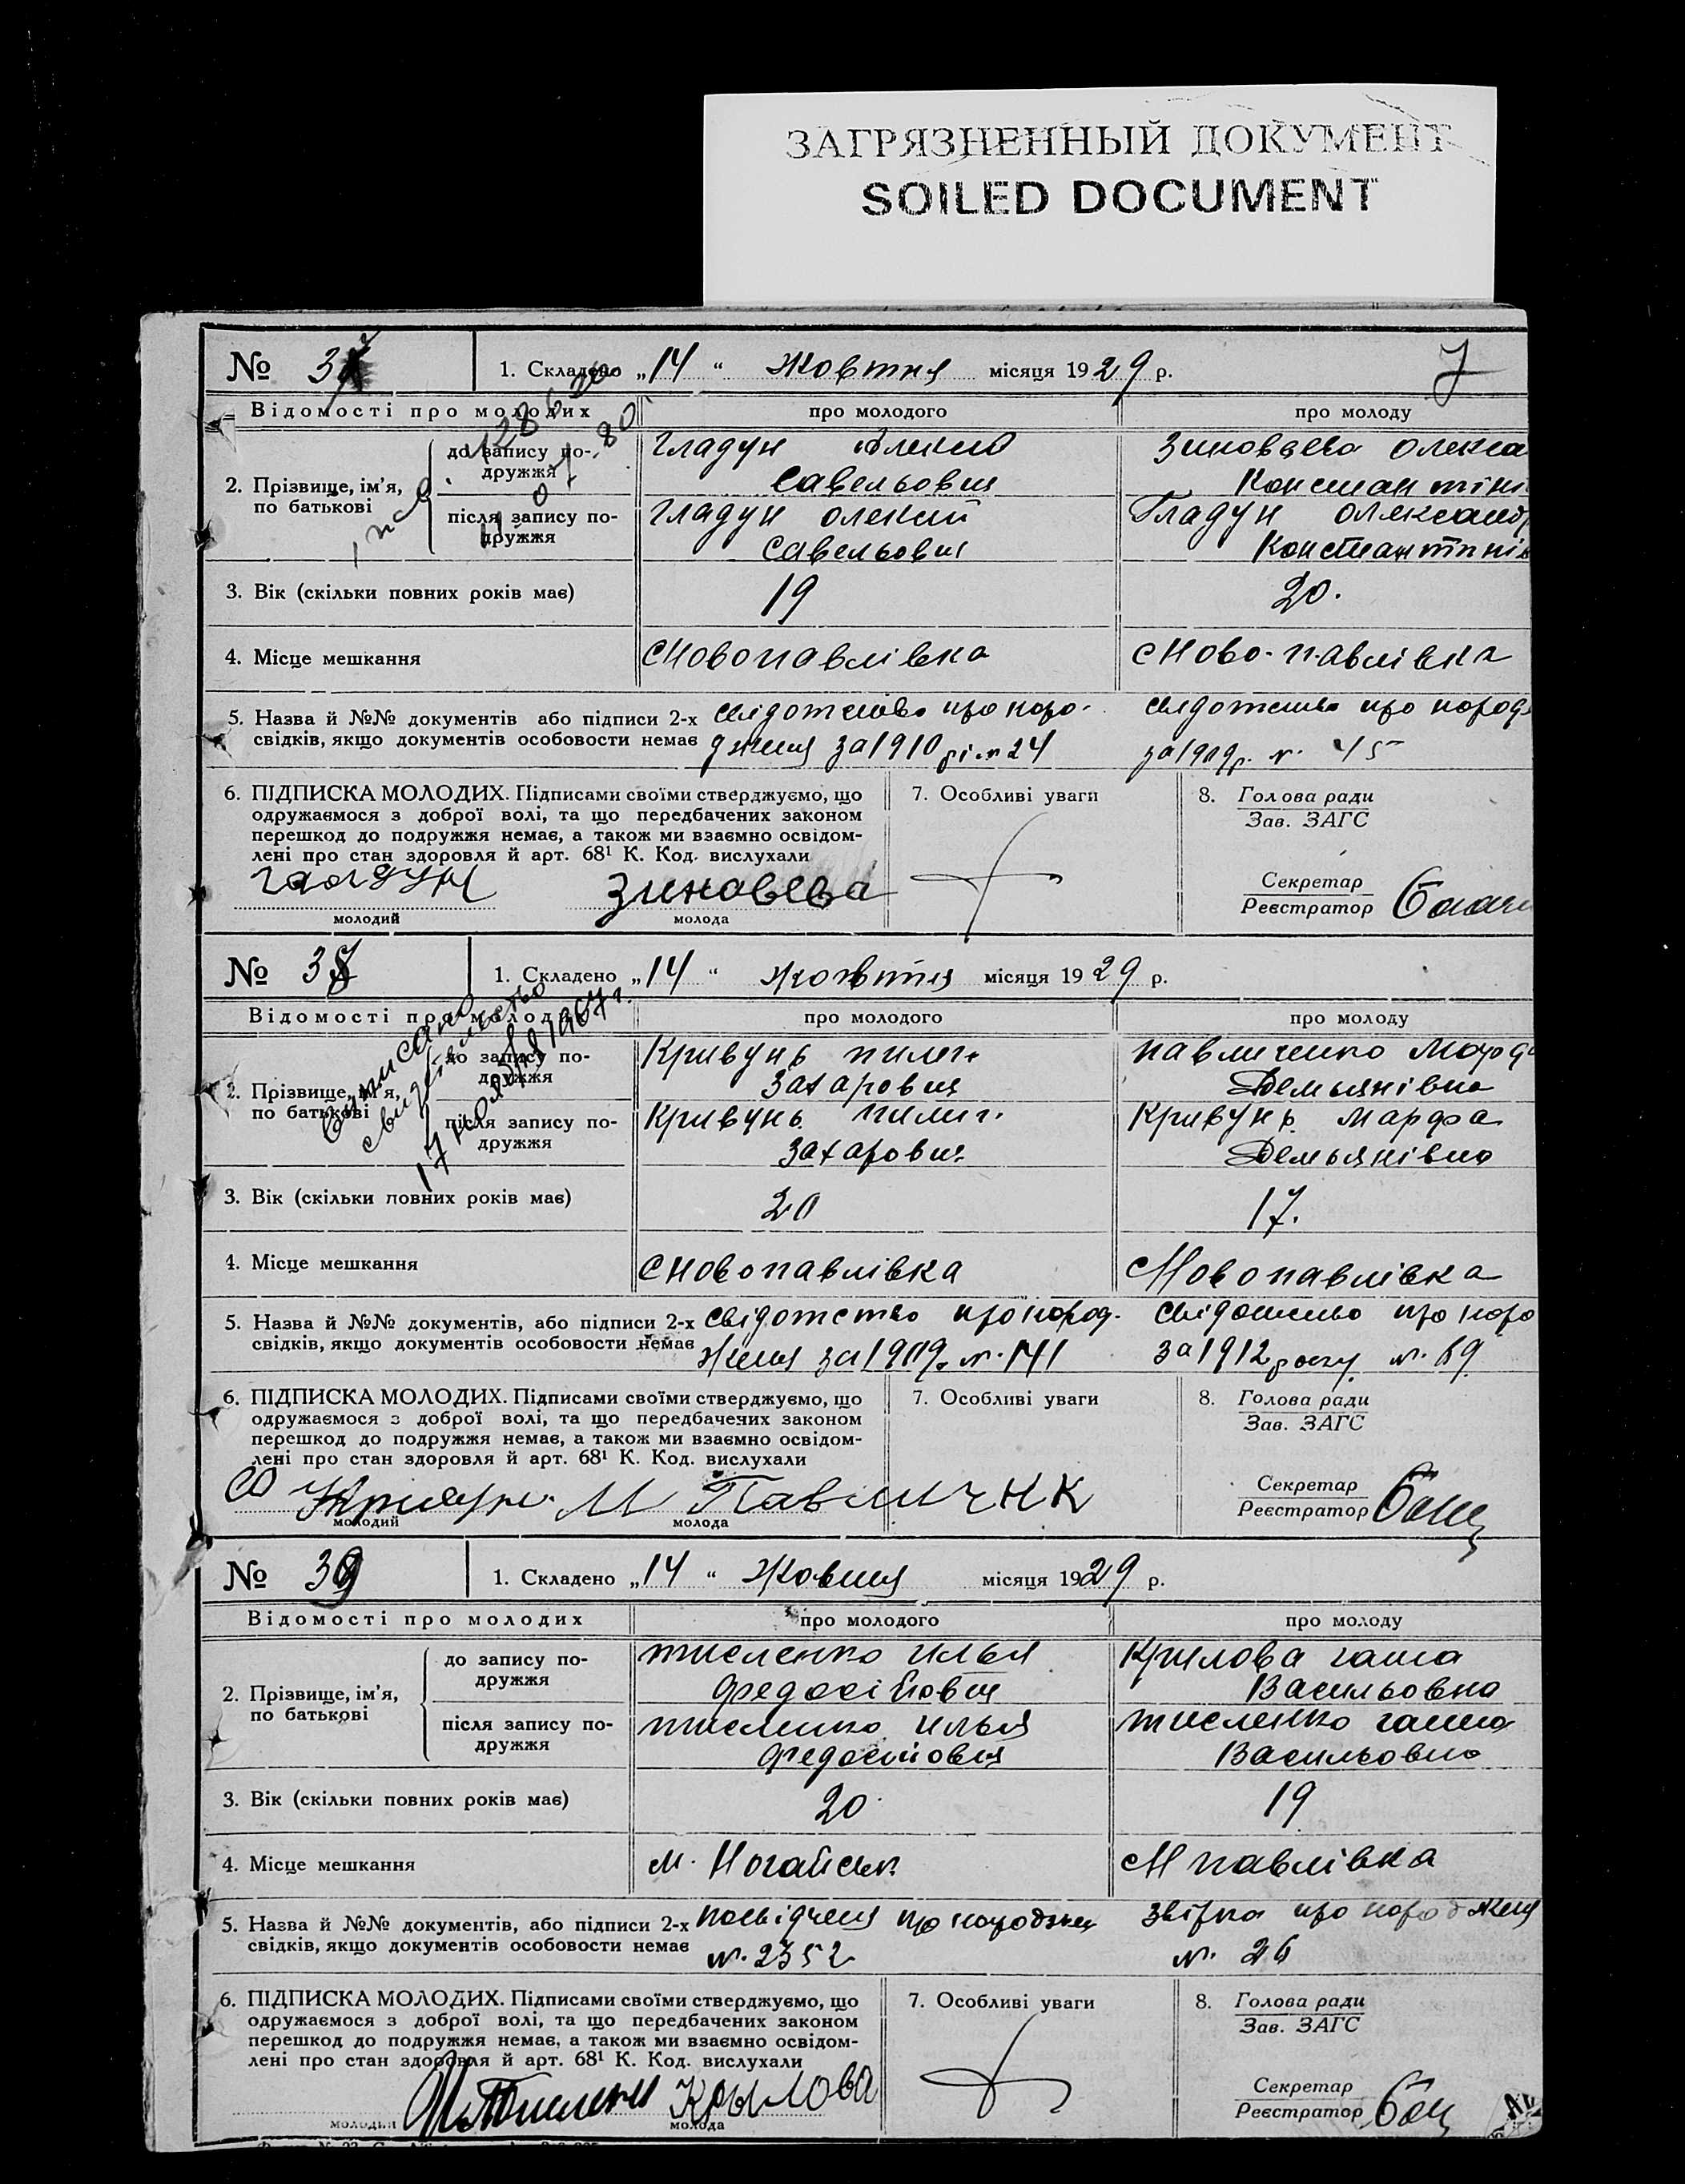 ЗАГРЯЗНЕННЫЙ ДОКУМЕНТ
SOILED DOCUMENT
7
№ 37 1. Складено „14“ Жовтня місяця 1929 р.
Відомості про молодих про молодого про молоду
2. Прізвище, ім’я, по батькові
до запису по-дружжя
Гладун Олексій Зиновьева Олекса
Савельович Констянтіні
після запису по-дружжя
Гладун Олексий Гладун Олександ
Савельович Константині
3. Вік (скільки повних років має) 19 20.
4. Місце мешкання с Новопавлівка с Ново-павлівка
5. Назва й №№ документів або підписи 2-х свідотство про наро- свідотство про народ
свідків, якщо документів особовости немає дженя за 1910 рік № 24 за 1909р. №. 45
6. ПІДПИСКА МОЛОДИХ. Підписами своїми стверджуємо, що 7. Особливі уваги 8. Голова ради
одружаємося з доброї волі, та що передбачених законом Зав. ЗАГС
перешкод до подружжя немає, а також ми взаємно освідом-
лені про стан здоровля й арт. 68¹ К. Код. вислухали
Гладун Зиновева Секретар
молодий молода Реєстратор
№ 38 1. Складено „14“ жовтня місяця 1929 р.
Відомості про молодих про молодого про молоду
выписано
свидетельство
17 ноября 1967 г.
2. Прізвище, ім’я, по батькові
до запису по-дружжя
Кривунь пилип Павличенко Марфа
Захарович Демьянівна
після запису по-дружжя
Кривунь пилип Кривунь Марфа
Захарович Демьянівна
3. Вік (скільки повних років має) 20 17.
4. Місце мешкання с Новопавлівка с Новопавлівка
5. Назва й №№ документів, або підписи 2-х свідотство про народ- свідотство про наро
свідків, якщо документів особовости немає женя за 1909р №. 141 за 1912 року №. 69
6. ПІДПИСКА МОЛОДИХ. Підписами своїми стверджуємо, що 7. Особливі уваги 8. Голова ради
одружаємося з доброї волі, та що передбачених законом Зав. ЗАГС
перешкод до подружжя немає, а також ми взаємно освідом-
лені про стан здоровля й арт. 68¹ К. Код. вислухали
Кривун М Павличнк Секретар
молодий молода Реєстратор
№ 39 1. Складено „14“ Жовтня місяця 1929 р.
Відомості про молодих про молодого про молоду
2. Прізвище, ім’я, по батькові
до запису по-дружжя
тисленко илья Крилова ганна
Федосійович Васильовна
після запису по-дружжя
тисленко илья тисленко ганна
Федосійович Васильовна
3. Вік (скільки повних років має) 20 19
4. Місце мешкання м. Ногайськ с Н павлівка
5. Назва й №№ документів, або підписи 2-х посвідченя про народженя звірка про народженя
свідків, якщо документів особовости немає №. 2352 №. 26
6. ПІДПИСКА МОЛОДИХ. Підписами своїми стверджуємо, що 7. Особливі уваги 8. Голова ради
одружаємося з доброї волі, та що передбачених законом Зав. ЗАГС
перешкод до подружжя немає, а також ми взаємно освідом-
лені про стан здоровля й арт. 68¹ К. Код. вислухали
Крылова Секретар
молодий молода Реєстратор